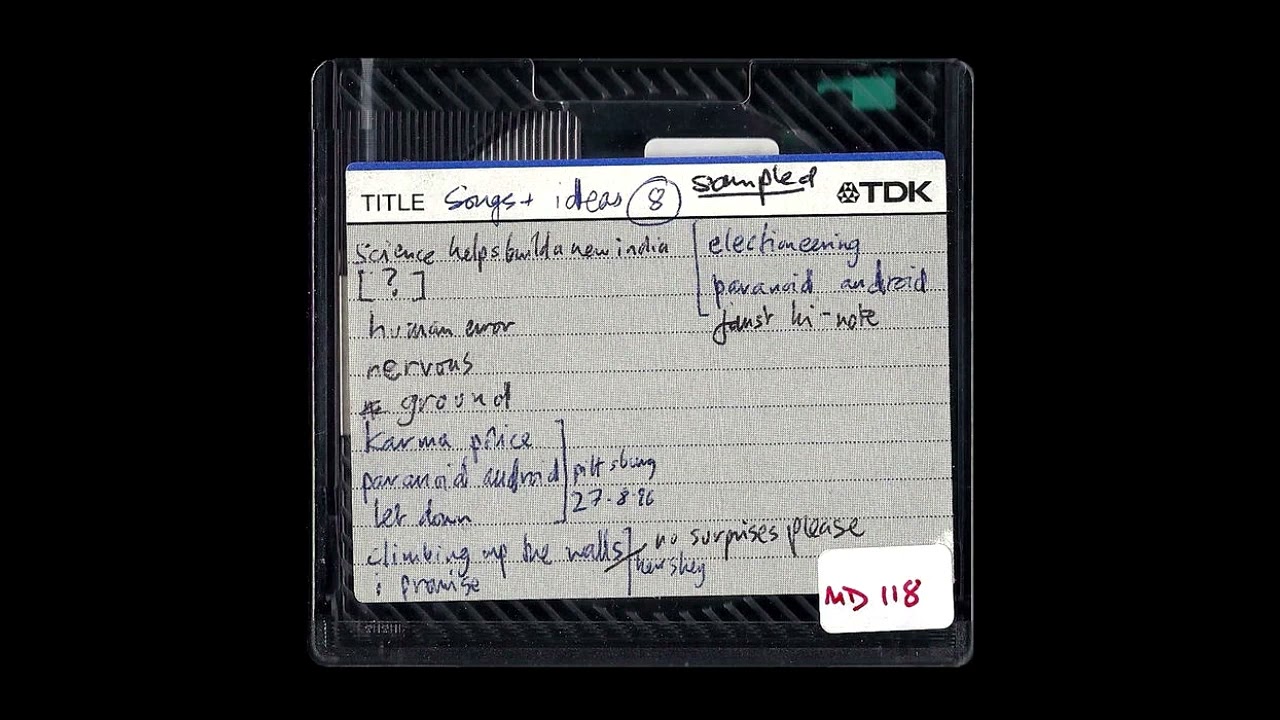 TITLE Songs + ideas 8 sampled TDK
science helps build a new india
[?]
human error
nervous
ground
karma police
paranoid android
let down
pittsburg
27-8-96
climbing up the walls
i promise
hershey
no surprises please
electioneering
paranoid android
hi-note
MD 118